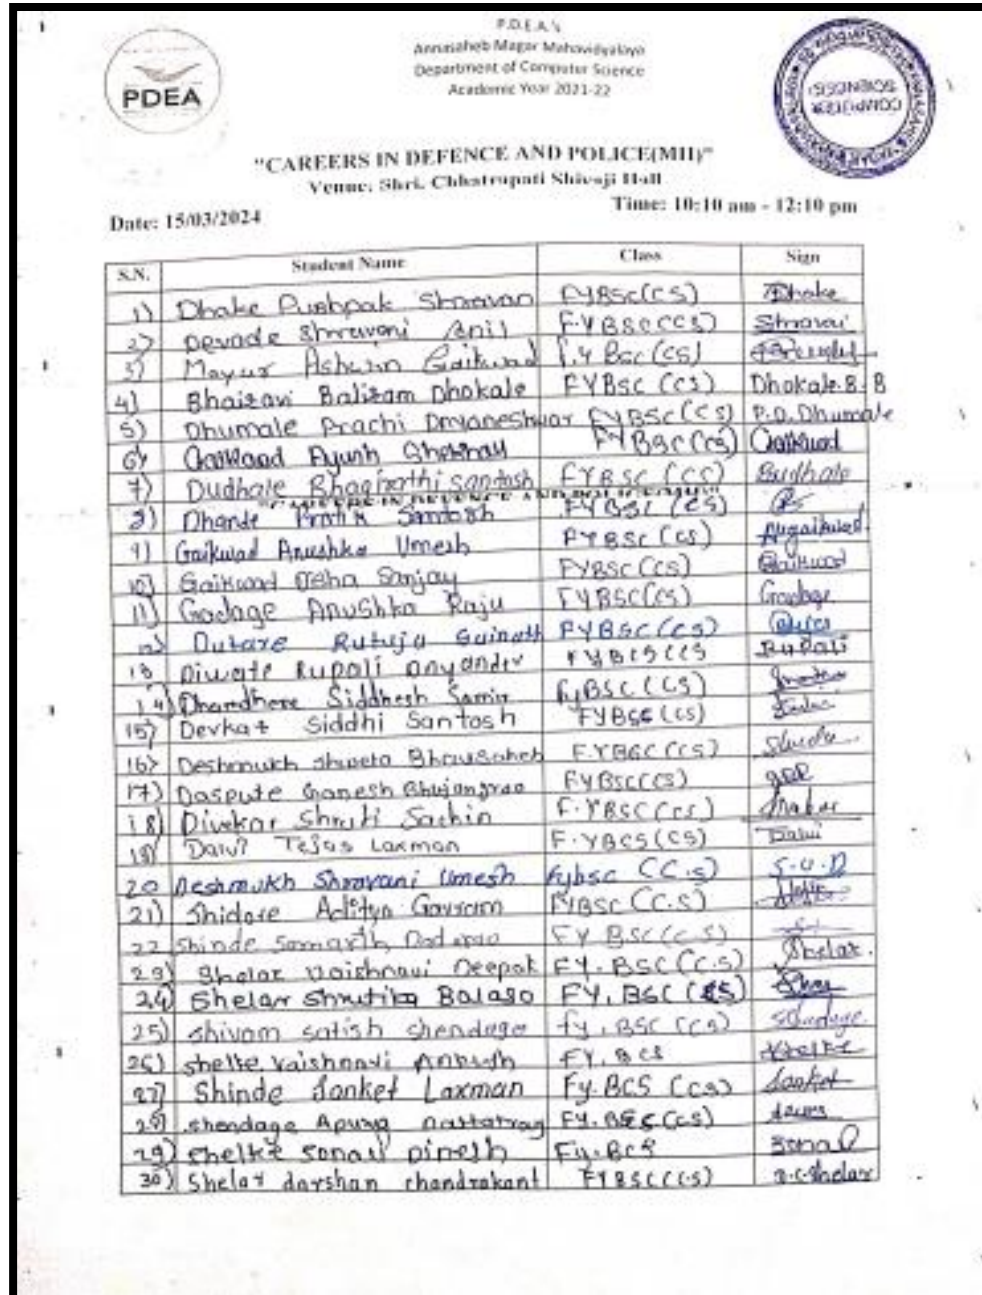 P.D.E.A.'s
Annasaheb Magar Mahavidyalaya
Department of Computer Science
Academic Year 2021-22
PDEA
COMPUTER
SCIENCES
"CAREERS IN DEFENCE AND POLICE(MII)"
Venue: Shri. Chhatrapati Shivaji Hall
Time: 10:10 am - 12:10 pm
Date: 15/03/2024
S.N. Student Name Class Sign
1) Dhake Pushpak Shravan FYBSc(CS) Dhake
2) Devade Shravani Anil F.YBSC(CS)
3) Mayur Ashwin Gaikwad F.Y BSC (CS)
4) Bhairavi Baliram Dhokale FYBSC (CS) Dhokale.B.B
5) Dhumale Prachi Dnyaneshwar FYBSC (CS) P.D.Dhumale
6) Gaikwad Ayush FYBSC(CS) Gaikwad
7) Dudhale Bhagirathi santosh FYBSC (CS) Dudhale
"CAREERS IN DEFENCE AND POLICE(MII)"
8) Dhande Pratik Santosh FYBSC (CS)
9) Gaikwad Anushka Umesh FYBSC (CS) Augaikwad
10) Gaikwad Sanjay FYBSC(CS) Gaikwad
11) Godage Anushka Raju FYBSC(CS) Godage
12) Dutare Rutuja Gainath FYBSC(CS)
13 Diwate Rupali FYBCS(CS Rupali
14) Dhamdhere Siddhesh Samir FyBSC (CS)
15) Devkat Siddhi Santosh FYBSC (CS)
16) Deshmukh shweta Bhausaheb F.YBSC (CS)
17) Daspute Ganesh Bhujangrao FYBSC(CS)
18) Divekar Shruti Sachin F.YBSC(CS)
19) Dalvi Tejas Laxman F.YBCS(CS) Dalvi
20 Deshmukh Shravani Umesh Fybsc (C.s) S.U.D
21) Shidore Aditya Gavram FYBSC (C.S)
22 Shinde Samarth Dadarao FY BSC (C.S)
23) Shelar Vaishnavi Deepak FY.BSC (C.S) Shelar.
24) Shelar Shrutika Balaso FY.BSC (CS)
25) shivam satish shendage fy.BSC (CS) Shendage.
26) shelke vaishnavi FY.BCS shelke
27) Shinde Sanket Laxman Fy.BCS (CS) Sanket
28) shendage Apurva Dattatray FY.BSC(CS)
29) shelke sonali dinesh Fy.BCS Sonal
30) Shelar darshan chandrakant FYBSC(CS) D.C.Shelar